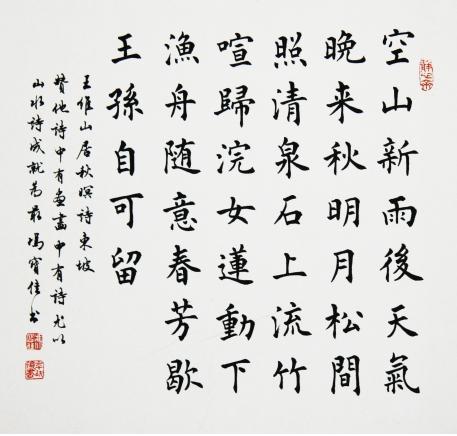 空山新雨後天氣
晚来秋明月松間
照清泉石上流竹
喧歸浣女蓮動下
漁舟随意春芳歇
王孫自可留
王維山居秋暝詩東坡
贊他詩中有畫畫中有詩尤以
山水詩成就為最馮寶佳書